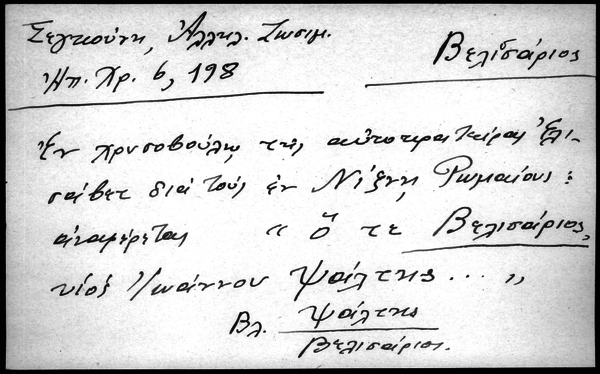 Σεγκούνη, Ἀλληλ. Ζωσιμ.
Ἠπ. Χρ. 6, 198
Βελισάριος
Ἐν χρυσοβούλῳ τῆς αὐτοκρατείρας Ἐλι-
σάβετ διά τούς ἐν Νίζνῃ Ρωμαίους:
ἀναφέρεται "ὅ τε Βελισάριος,
υἱός Ἰωάννου Ψάλτης... "
Βλ. Ψάλτης
Βελισάριος.